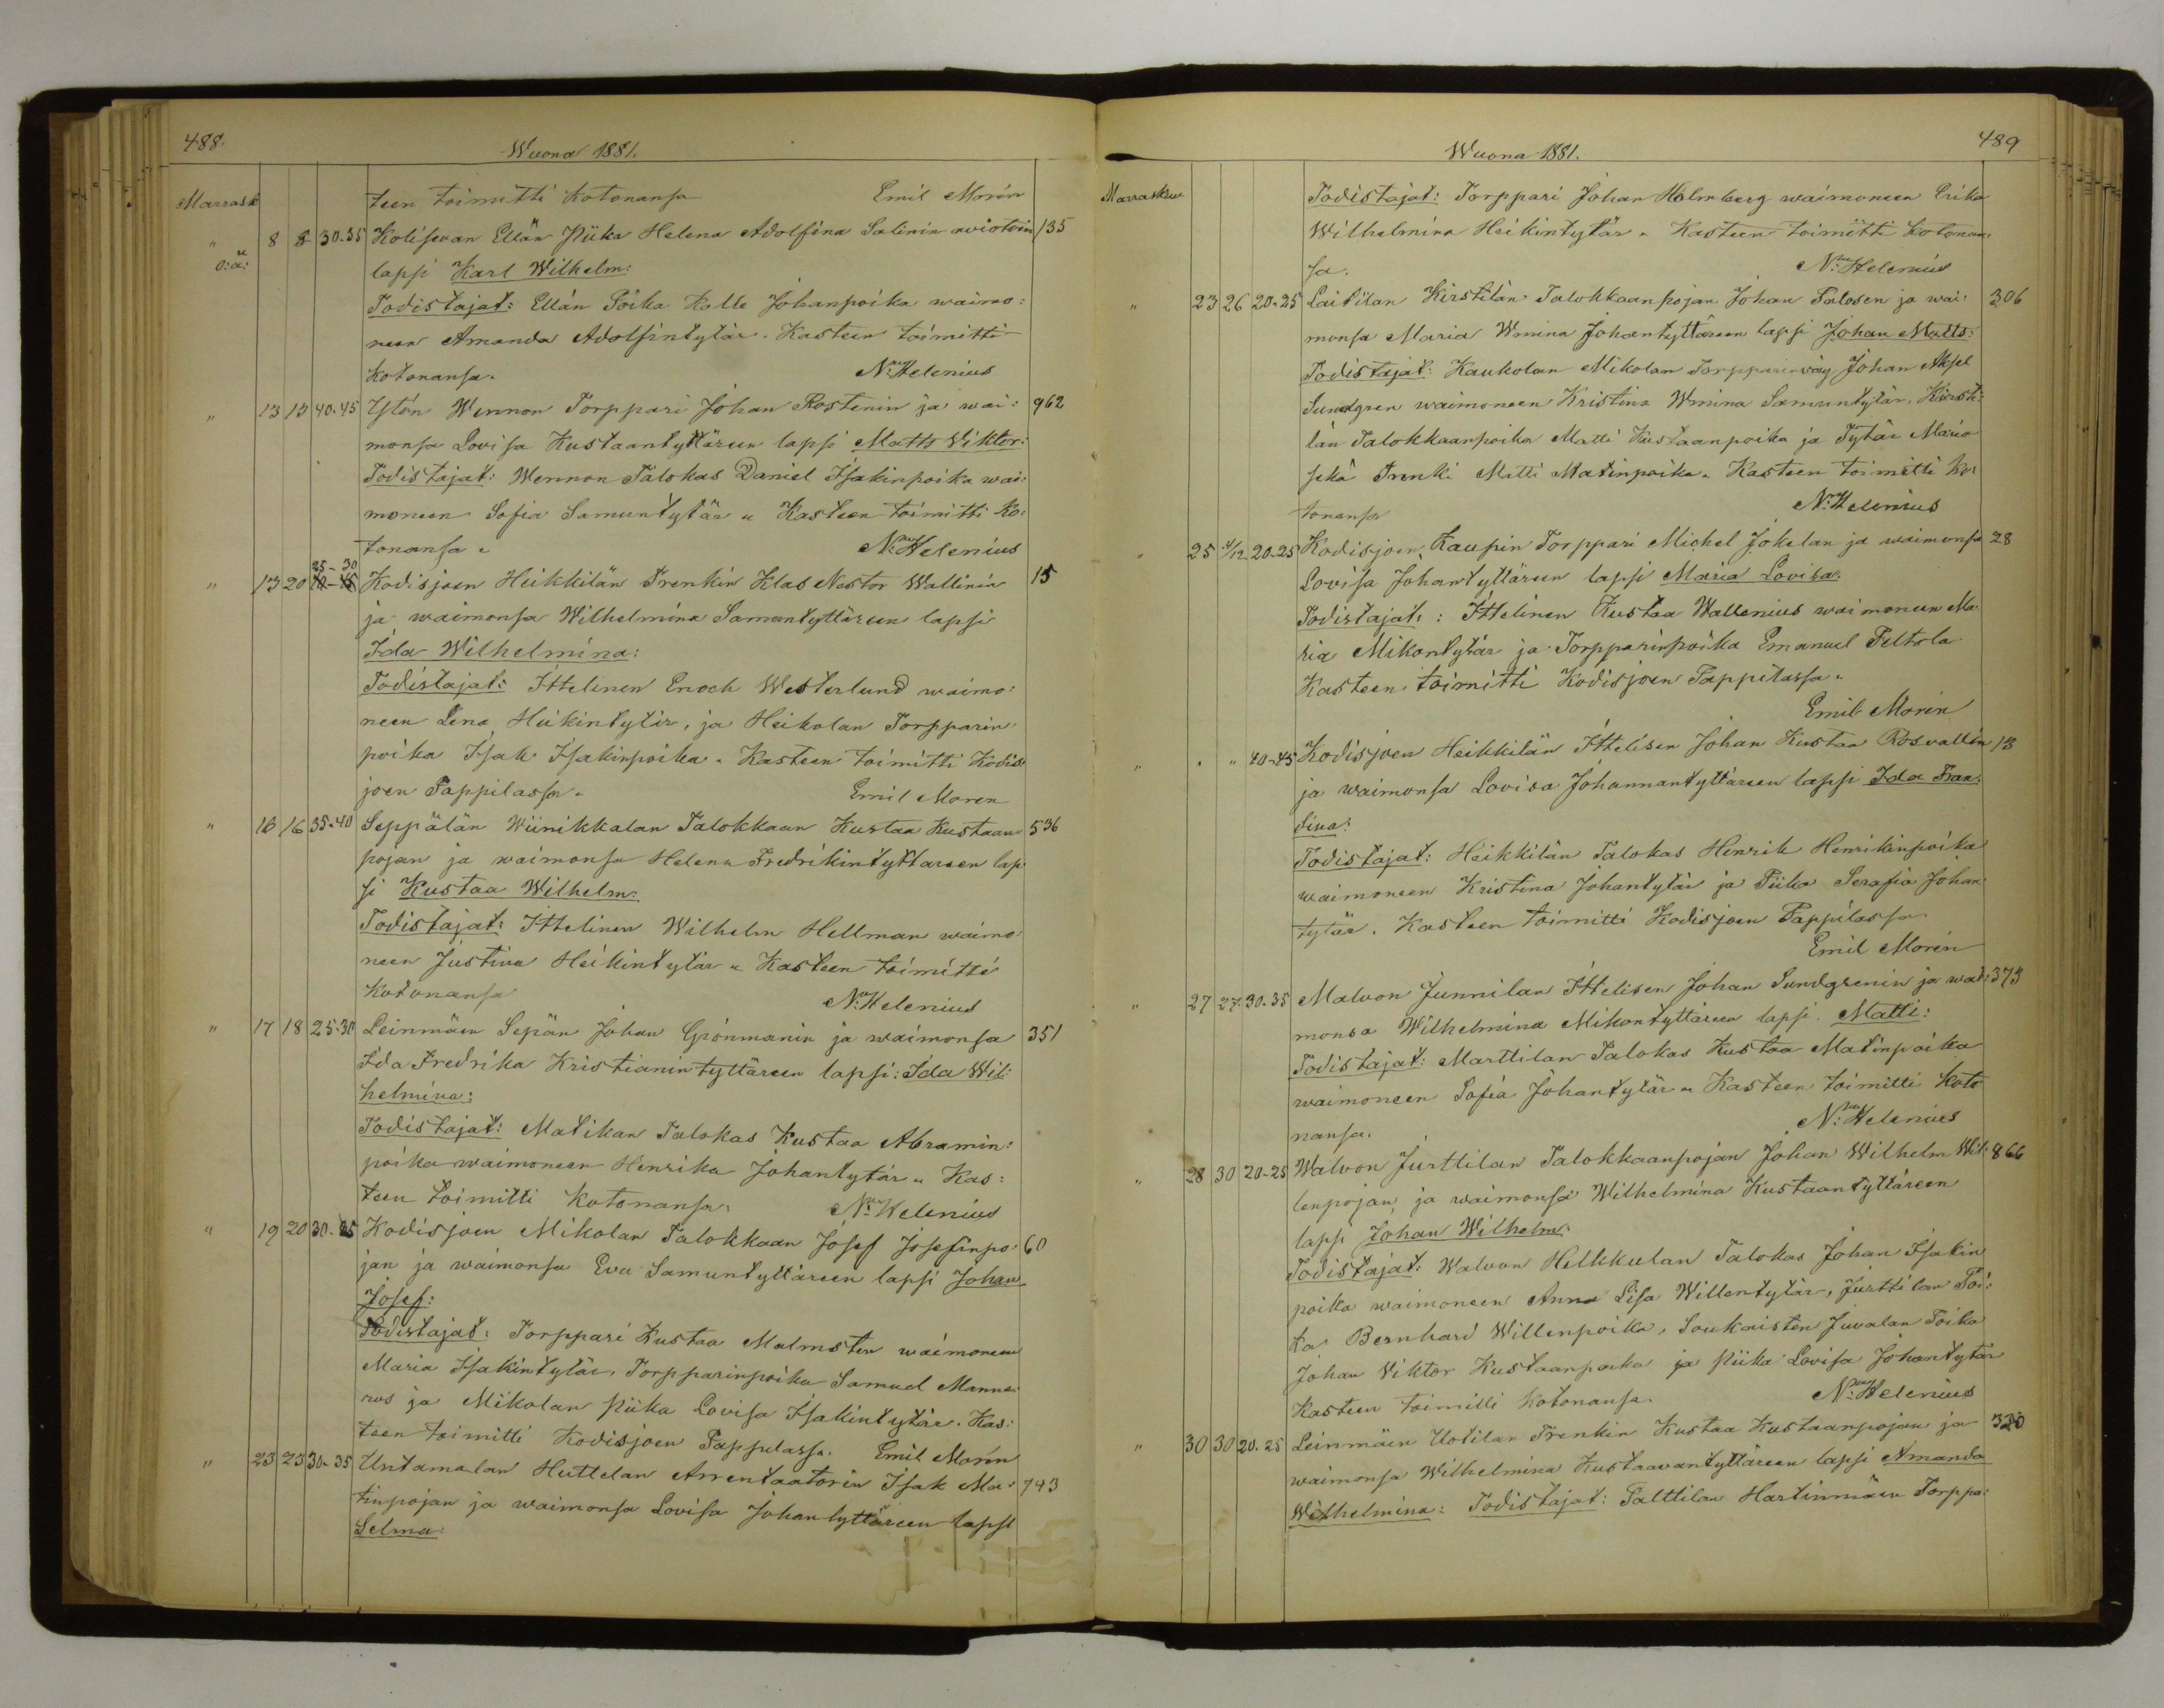 488.
Wuona 1881.
Marrask teen toimitti Kotonansa Emil Morin
" 8 8 30-35 Kolisevan Ellän Piika Helena Adolfina Salinin aviotoin 135
o:ä: lapsi Karl Wilhelm:
Todistajat: Ellän Poika Kalle Johanpoika waimo:
neen Amanda Adolfintytär. Kasteen toimitti
Kotonansa. N: Helenius
" 13 13 40-45 Ytön Wennon Torppari Johan Rostenin ja wai: 962
monsa Lovisa Kustaantyttäreen lapsi Matts Viktor:
Todistajat: Wennon Talokas Daniel Isakinpoika wai:
moneen Sofia Samuntytär " Kasteen toimitti Ko:
tonansa " N: Helenius
25-30
" 13 20 40-45 Kodisjoen Heikkilän Trenkin Klas Nestor Wallinin 15
ja waimonsa Wilhelmina Samuntyttäreen lapsi
Ida Wilhelmina:
Todistajat: Ittelinen Enoch Westerlund waimo:
neen Lena Heikintytär, ja Heikolan Torpparin
poika Isak Isakinpoika. Kasteen toimitti Kodis:
joen Pappilassa. Emil Moren
" 16 16 35-40 Seppälän Wiinikkalan Talokkaan Kustaa Kustaan 536
pojan ja waimonsa Helena Fredrikintyttareen lap
si Kustaa Wilhelm:
Todistajat: Ittelinen Wilhelm Hellman waimo:
neen Justina Heikintytär " Kasteen toimitti
Kotonansa N: Helenius
" 17 18 25-30 Leinmäen Sepän Johan Grönmanin ja waimonsa 351
Ida Fredrika Kristianintyttäreen lapsi: Ida Wil:
helmina:
Todistajat: Matikan Talokas Kustaa Abramin:
poika waimoneen Henrika Johantytär " Kas:
teen toimitti Kotonansa. N: Helenius
" 19 20 30-35 Kodisjoen Mikolan Talokkaan Josef Josefinpo: 60
jan ja waimonsa Eva Samuntyttäreen lapsi Johan
Josef:
Todistajat: Torppari Kustaa Malmsten waimoneen
Maria Isakintytär, Torpparinpoika Samuel Manne:
ros ja Mikolan Piika Lovisa Isakintytär. Kas:
teen toimitti Kodisjoen Pappilassa. Emil Morin
" 23 23 30-35 Untamalan Huttelan Arrentaatorin Isak Ma: 743
tinpojan ja waimonsa Lovisa Johantyttäreen lapsi
Selma:
489
Wuona 1881.
Marraskuu Todistajat: Torppari Johan Holmberg waimoneen Erika
Wilhelmina Heikintytär " Kasteen toimitti Kotonan:
sa. N: Helenius
" 23 26 20-25 Laitilan Kirstilän Talokkaanpojan Johan Palosen ja wai: 306
monsa Maria Wmina Johantyttäreen lapsi Johan Matts:
Todistajat: Kaukolan Mikolan Torpparinväy Johan Aksel
Sundgren waimoneen Kristina Wmina Samuntytär, Kirsti:
län Talokkaanpoika Matti Kustaanpoika ja Tytär Maria
sekä Trenki Matti Matinpoika " Kasteen toimitti Ko:
tonansa N: Helenius
" 25 4/12 20-25 Kodisjoen Kaupin Torppari Michel Jokelan ja waimonsa 28
Lovisa Johantyttäreen lapsi Maria Lovisa:
Todistajat: Ittelinen Kustaa Wallenius waimoneen Ma:
ria Mikontytär ja Torpparinpoika Emanuel Peltola
Kasteen toimitti Kodisjoen Pappilassa "
Emil Morin
" " " 40-45 Kodisjoen Heikkilän Ittelisen Johan Kustaa Rosvallin 18
ja waimonsa Lovisa Johannantyttäreen lapsi Ida Fran:
sina:
Todistajat: Heikkilän Talokas Henrik Henrikinpoika
waimoneen Kristina Johantytär ja Piika Serafia Johan:
tytär. Kasteen toimitti Kodisjoen Pappilassa
Emil Morin
" 27 27 30-35 Malvon Junnilan Ittelisen Johan Sundgrenin ja wai: 373
monsa Wilhelmina Mikontyttäreen lapsi Matti:
Todistajat: Marttilan Talokas Kustaa Matinpoika
waimoneen Sofia Johantytär " Kasteen toimitti Koto
nansa. N: Helenius
" 28 30 20-25 Walvon Jurttilan Talokkaanpojan Johan Wilhelm Wil: 866
lenpojan ja waimonsa Wilhelmina Kustaantyttäreen
lapsi Johan Wilhelm:
Todistajat: Walvon Helkkulan Talokas Johan Isakin
poika waimoneen Anna Lisa Willentytär, Jurttilan Poi:
ka Bernhard Willenpoika, Soukaisten Juvalan Poika
Johan Viktor Kustaanpoika ja Piika Lovisa Johantytär
Kasteen toimitti Kotonansa. N: Helenius
" 30 30 20-25 Leinmäen Uotilan Trenkin Kustaa Kustaanpojan ja 320
waimonsa Wilhelmina Kustaavantyttäreen lapsi Amanda
Wilhelmina: Todistajat: Palttilan Harlinmäen Torppa: